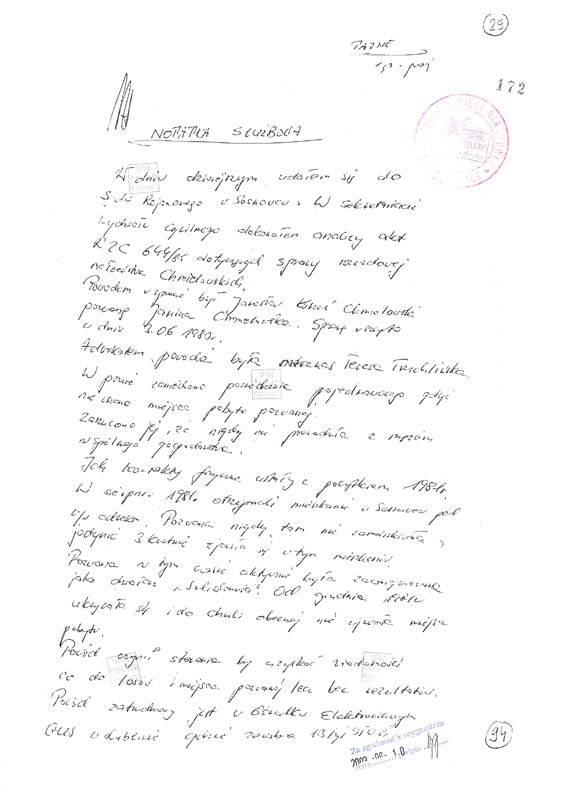 29
TAJNE
egz. poj
172
NOTATKA SŁUŻBOWA
W dniu dzisiejszym udałem się do
Sądu Rejonowego w Sosnowcu. W sekretariacie
Wydziału Cywilnego dokonałem analizy akt
R IC 644/85 dotyczących sprawy rozwodowej
małżeństwa Chmielowskich.
Powodem w sprawie był Jarosław Chmielowski
pozwaną Janina Chmielowska. Sprawę wszczęto
w dniu 3.06 1985r.
Adwokatem powoda była mecenas Teresa
W pozwie zaniechano posiedzenia pojednawczego gdyż
nie znano miejsca pobytu pozwanej.
Zarzucono jej, że nigdy nie prowadziła z mężem
wspólnego gospodarstwa.
Ich kontakty fizyczne ustały z początkiem 1981r.
W sierpniu 1981r. otrzymali mieszkanie w Sosnowcu pod
w/w adresem. Pozwana nigdy tam nie zamieszkała,
jedynie 3 krotnie zjawiła się w tym mieszkaniu.
Pozwana w tym czasie aktywnie była zaangażowana
jako działacz "Solidarności". Od grudnia 1981r
ukrywała się i do chwili obecnej nie ujawniła miejsca
pobytu.
Powód czynił starania by uzyskać wiadomości
co do losów i miejsca pozwanej lecz bez rezultatów.
Powód zatrudniony jest w Ośrodku Elektronicznym
w Lublinie gdzie zarabia
Za zgodność z oryginałem
data podpis
94